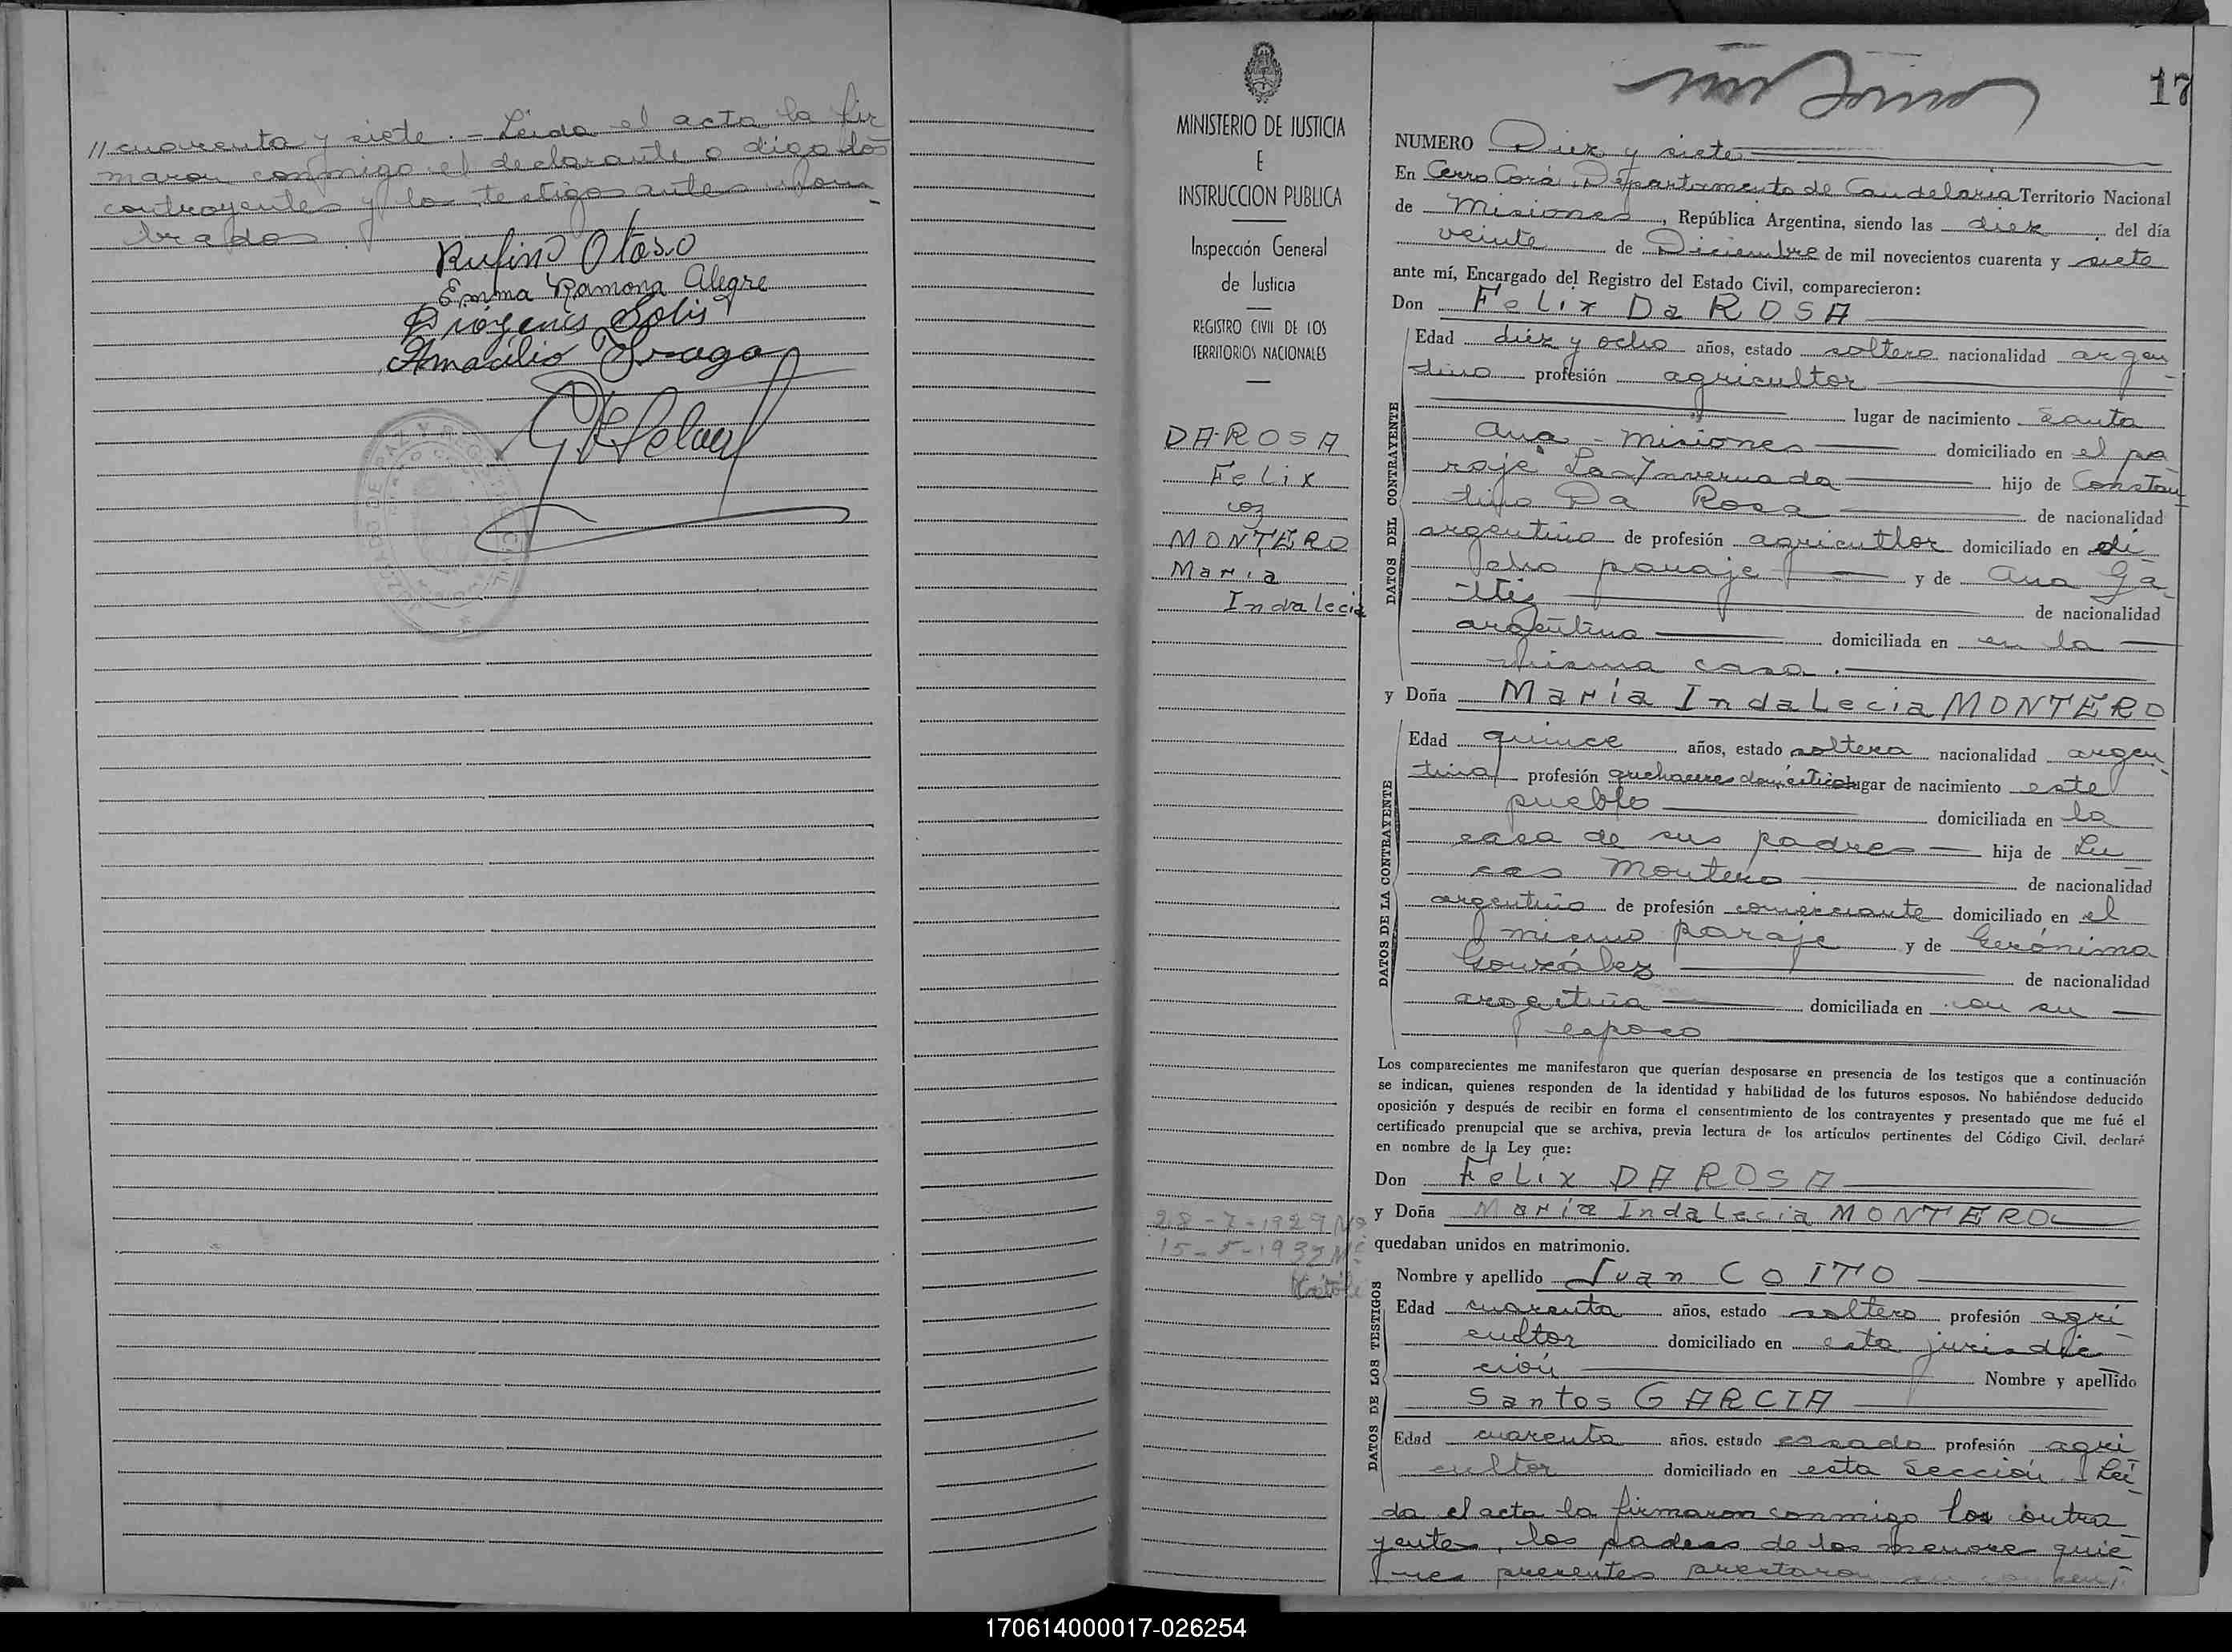 // cuarenta y siete.- Leida el acta la fir
maron conmigo el declarante o digo los
contrayentes y los testigos antes nom-
brados.
Rufino Otaso
Emma Ramona Alegre
Diógenes Solis
Amacilio Fraga
17
MINISTERIO DE JUSTICIA
E
INSTRUCCION PUBLICA
Inspección General
de Justicia
REGISTRO CIVIL DE LOS
TERRITORIOS NACIONALES
DA ROSA
Felix
con
MONTERO
Maria
Indalecia
28-7-1929
15-5-1932
NUMERO Diez y siete
En Cerro Corá, Departamento de Candelaria Territorio Nacional
de Misiones, República Argentina, siendo las diez del día
veinte de Diciembre de mil novecientos cuarenta y siete
ante mí, Encargado del Registro del Estado Civil, comparecieron:
Don Felix Da ROSA
DATOS DEL CONTRAYENTE
Edad diez y ocho años, estado soltero nacionalidad argen-
tino profesión agricultor
lugar de nacimiento Santa
Ana - Misiones domiciliado en el pa-
raje La Invernada hijo de Constan-
tino Da Rosa de nacionalidad
argentino de profesión agricutlor domiciliado en di-
cho paraje y de Ana Ga-
de nacionalidad
argentina domiciliada en en la
misma casa.
y Doña María Indalecia MONTERO
DATOS DE LA CONTRAYENTE
Edad quince años, estado soltera nacionalidad argen-
tina profesión quehaceres domésticos lugar de nacimiento este
pueblo domiciliada en la
casa de sus padres hija de Lu-
cas Montero de nacionalidad
argentino de profesión comerciante domiciliado en el
mismo paraje y de Gerónima
González de nacionalidad
argentina domiciliada en con su
esposo
Los comparecientes me manifestaron que querían desposarse en presencia de los testigos que a continuación
se indican, quienes responden de la identidad y habilidad de los futuros esposos. No habiéndose deducido
oposición y después de recibir en forma el consentimiento de los contrayentes y presentado que me fué el
certificado prenupcial que se archiva, previa lectura de los artículos pertinentes del Código Civil, declaré
en nombre de la Ley que:
Don Felix DA ROSA
y Doña María Indalecia MONTERO
quedaban unidos en matrimonio.
DATOS DE LOS TESTIGOS
Nombre y apellido Juan COITO
Edad cuarenta años, estado soltero profesión agri-
cultor domiciliado en esta jurisdic-
ción Nombre y apellido
Santos GARCIA
Edad cuarenta años. estado casado profesión agri-
cultor domiciliado en esta Sección.- Leí-
da el acta la firmaron conmigo los contra-
yentes, los padres de los menores quie-
nes presentes prestaron su
170614000017-026254